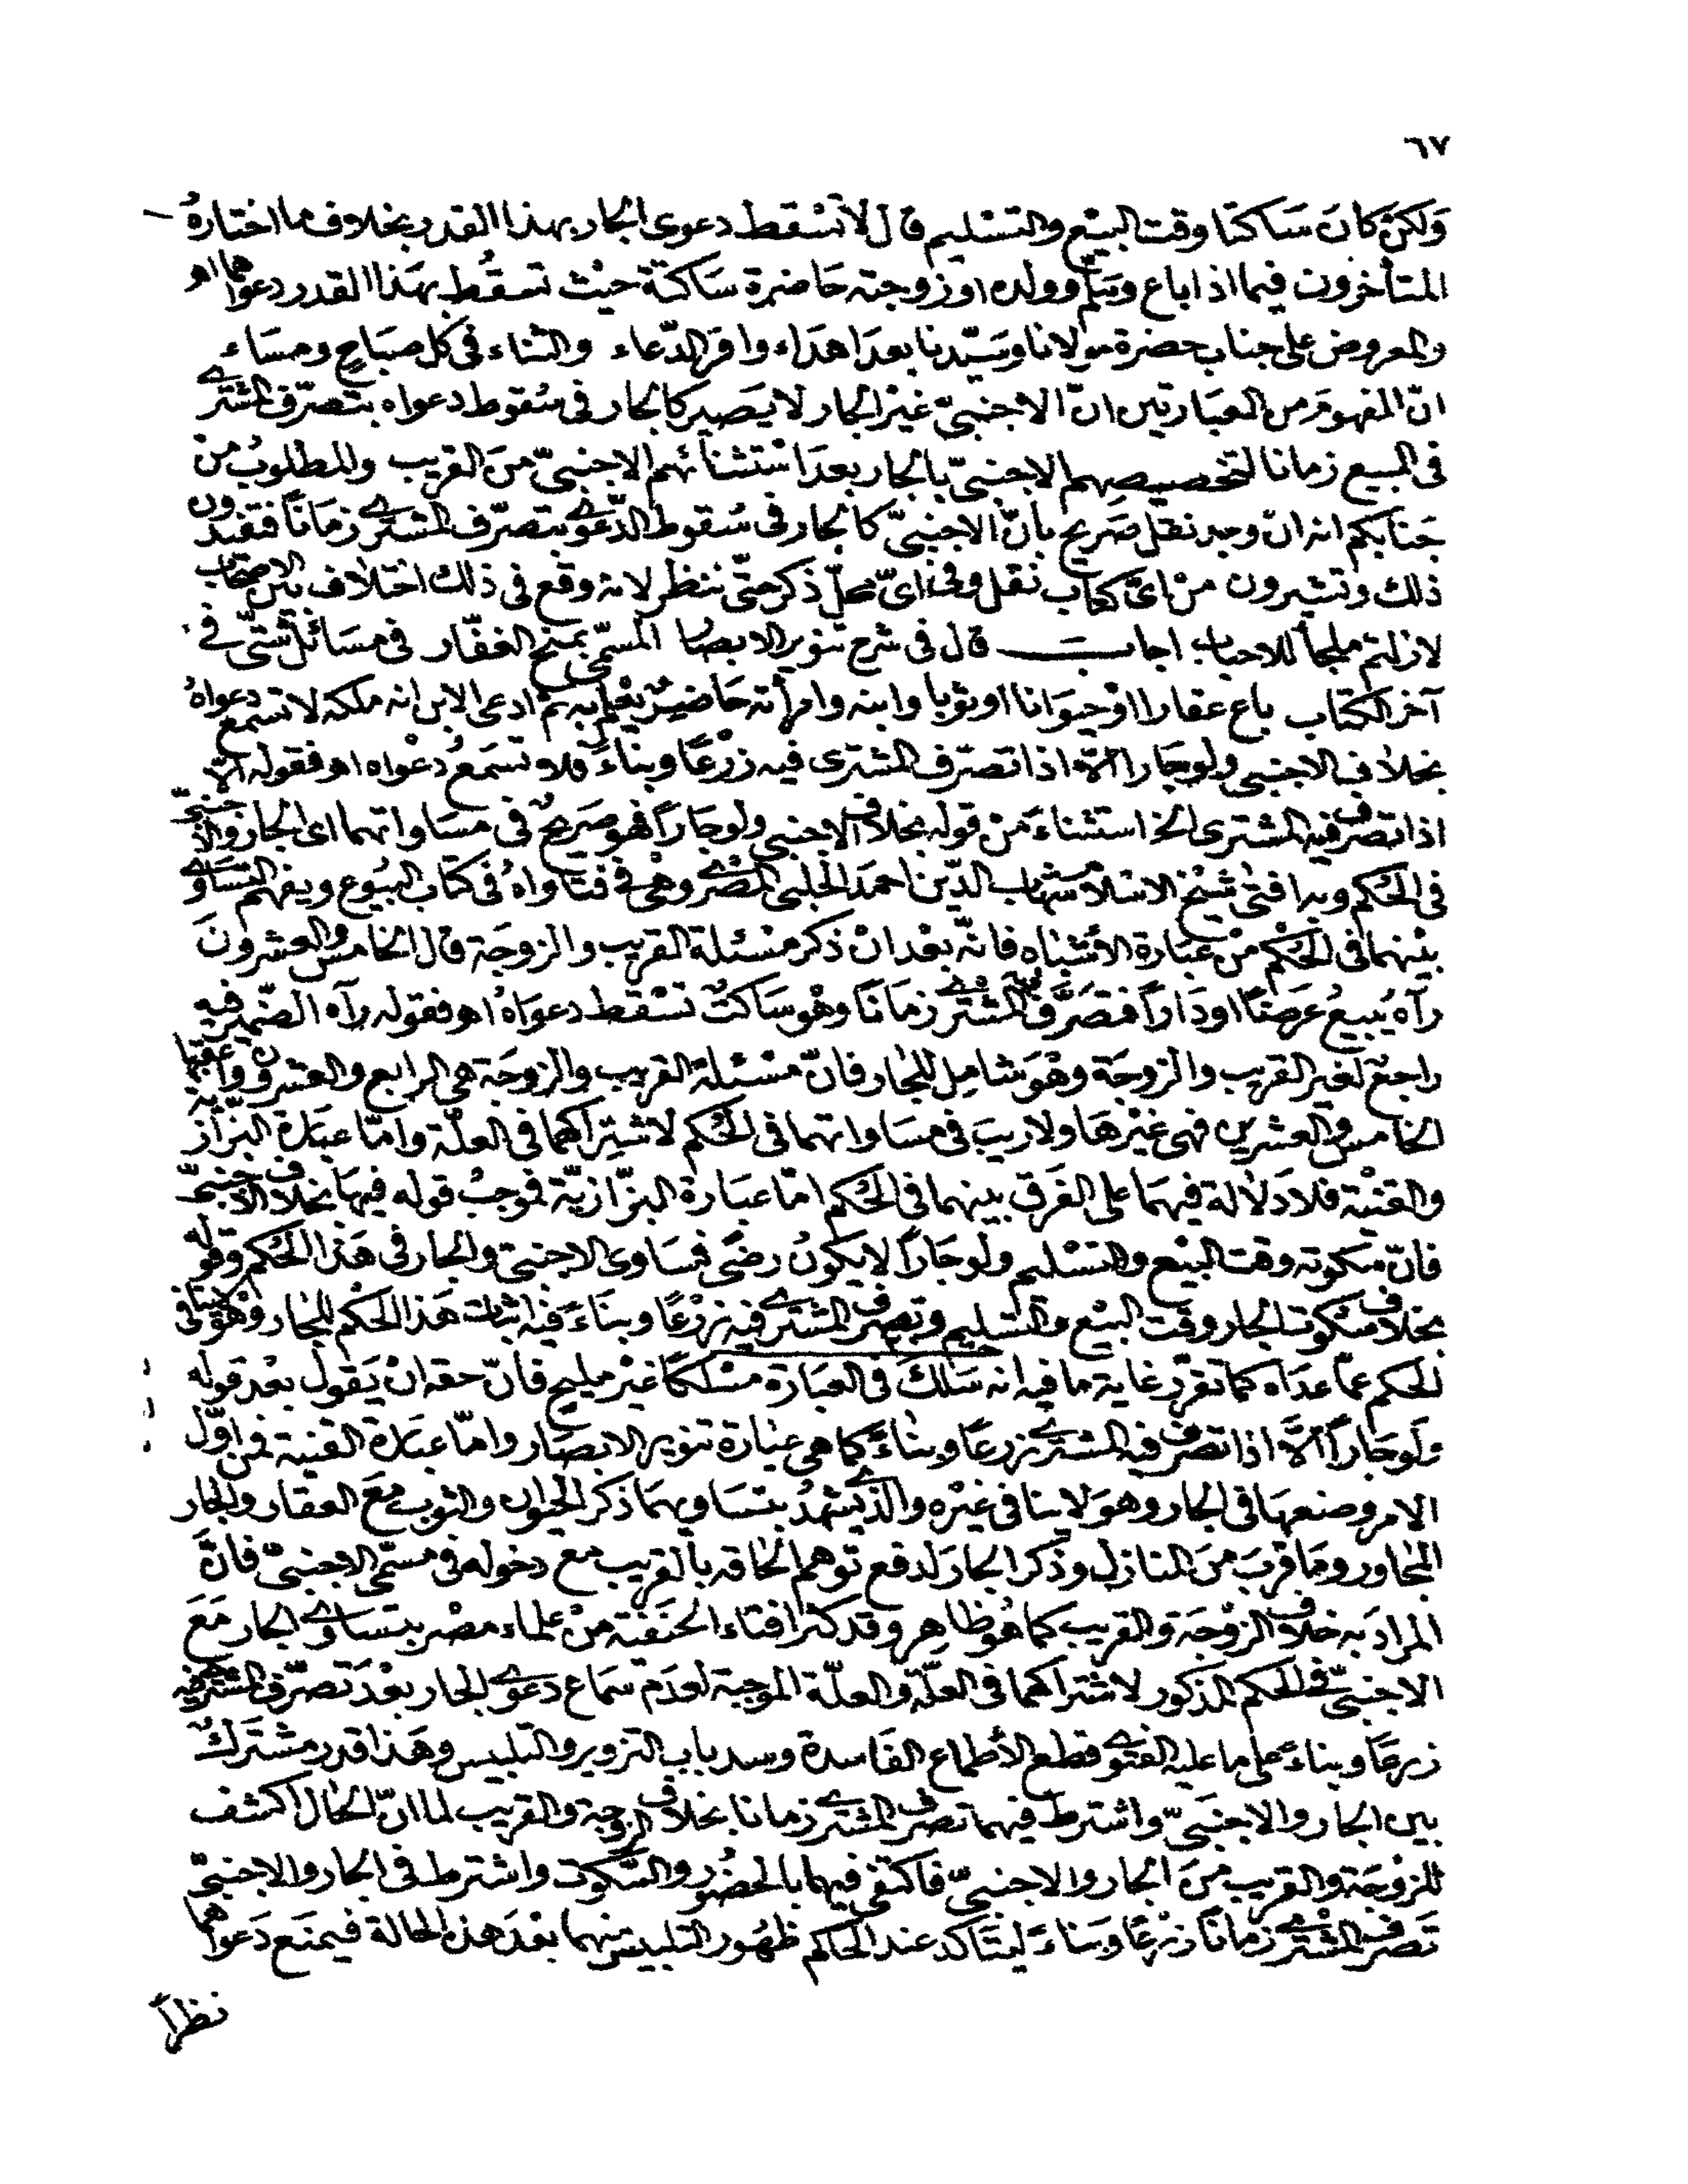 ٦٧
وَلكنْ كانَ سَاكتا وقت البيْع والتسْليم قال لا تسْقط دعوى الجار بهذا القدر بخلاف ما اختارهُ
المتأخرون فيما اذا باع وسَلم وولده او زوجته حَاضرة سَاكتة حيْث تسقُط بهَذا القدر دعواهما اه
والمعروض على جناب حضرة مولانا وسَيّدنا بعدَ اهدَاء وافر الدّعاء والثناء فى كل صبَاحٍ ومسَاء
انّ المفهوم من العبَارتين انّ الاجنبىّ غيْر الجار لا يصَير كالجار فى سُقوط دعواه بتصرّف المشترے
فى المبيع زمانا لتخصيصهم الاجنبىّ بالجار بعدَ اسْتثنائهم الاجنبىّ منَ القريب والمطلوبُ منْ
جَنابكم انه انْ وجد نقل صَريح بأنّ الاجنبىّ كالجار فى سُقوط الدّعوے بتصرّف المشترے زمَاناً فتفيدون
ذلك وتشيرون منْ اىّ كتاب نقل وفى اىّ محلّ ذكر حتىّ ننظر لانه وقع فى ذلك اختلاف بين الاصحَاب
لازلتم ملجأ للاحباب اجابَ قال فى شرح تنوير الابصار المسمّى بمنح الغفّار فى مسَائل شتىّ فے
آخر الكتاب باع عقارا اوْ حيوَانا او ثوبا وابنه وامرأته حَاضرٌ يعْلم به ثم ادعى الابن انه ملكه لا تسمع دعواهُ
بخلاف الاجنبى ولو جَارا الاّ اذا تصَرف المشترى فيه زرْعًا وبناءً فلا تسمَعُ دعْواه اه فقوله الاّ
اذا تصرف فيه المشترى الخ استثناءً منْ قوله بخلاف الاجنبى ولو جَاراً فهو صَريحٌ فى مسَاواتهما اى الجار والاجنبىّ
فى الحُكم وبه افتى شيْخ الاسْلام شهَاب الدّين احمَد الحلبى المصْرے وهْى فے فتاواهُ فى كتاب البيُوع ويفهم التسَاوے
بيْنهما فى الحُكم منْ عبَارة الاشْباه فانّه بعْد انْ ذكر مسْئلة القريب والزوجَة قال الخامسُ والعشرونَ
رآه يَبيعُ عَرَضًا اودَاراً فتصَرَّف المشترے زمَانًا وهْو سَاكتٌ تسْقط دعوَاهُ اه فقوله رآه الضّمير فيه
راجعٌ لغير القريب والزوجَة وهْوَ شامِل للجار فانّ مسْئلة القريب والزوجَة هى الرابع والعشرون واعقبهَا بـ
الخامس والعشرين فهى غيْرهَا ولا ريبَ فى مسَاواتهما فى الحُكم لاشتِراكهما فى العلّة وامّا عبَارة البزّازية
والقنيْة فلا دَلالة فيهمَا على الفَرق بينهما فى الحُكم امّا عبَارة البزّازيّة فموجبُ قوله فيهَا بخلاف الاجنبىّ
فانّ سكوته وقت البيْع والتسْليم ولو جَاراً لا يكونُ رضىً فسَاوى الاجنبىّ والجار فى هَذا الحُكم وقوله
بخلاف سُكوت الجار وقت البيْع والتسليم وتصرف المشترے فيه زرْعًا وبناءً فيه اثبات هَذا الحُكم للجار وهْو لا ينافى
الحكم عمّا عدَاه كما تقرّر غاية ما فيه انه سَلكَ فى العبَارة مسْلكًا غيْر مليح فانّ حقه انْ يَقول بعْد قوله
وَلو جَاراً الاّ اذا تصرف فيه المشترے زرعًا وبناءً كما هى عبَارة تنوير الابصَار وامّا عبَارة القنية فمن اوّل
الامر وضعهَا فى الجار وهوَ لا ينافى غيْره والذے يَشهدُ بتسَاويهمَا ذكر الحَيوان والثوب معَ العقار والجار
المجاور ومَا قربَ منَ المنازل وذكر الجارَ لدفع توهم الحَاقه بالقريب مع دخوله فى مسَمّى الاجنبىّ فانَّ
المرادَ به خلاف الزوْجَة والقريب كما هُو ظاهر وقد كثر افتاء الحَنفيّة منْ علماء مصْر بتساوے الجار مَعَ
الاجنبىّ فے الحكم المذكور لاشتراكهما فى العلّة والعلّة الموجبَة لعدَم سمَاع دعوے الجار بعْدَ تصرّف المشترے فيه
زرعًا وبناءً على ما عليه الفتوے قطع الأطماع الفَاسدة وسد باب التزوير والتلبيس وهَذا قدر مشترَكٌ
بين الجار والاجنبَىّ واشترط فيهما تصرف المشترے زمانا بخلاف الزوجة والقريب لما انّ الحَال اكشف
للزوجَة والقريب منَ الجار والاجنبىّ فاكتفى فيهما بالحضُور والسّكوت واشترط فى الجار والاجنبىّ
تَصَرف المشْترے زمانًا زرْعًا وبَناءً ليتَأكد عند الحَاكم ظهُور التلبيس منهما بعْدَ هذه الحَالة فيمنَع دَعواهما
نظراً